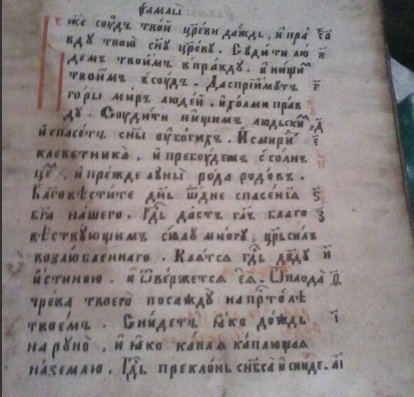 же сꙋ́дъ твой црⷭ҇еви да́ждь, и҆ пра
вдꙋ твою̀ сн҃ꙋ црⷭ҇евꙋ . Сꙋди́ти лю
демъ твои̑мъ в пра́вдꙋ . и҆ ни́щиⷨ
твои̑мъ в сꙋдъ . Да спрїи́мꙋтъ г҃
го́ры ми́ръ люде́й . и҆ хо́лми прав
дꙋ . Сꙋди́ти ни́щимъ людьскиⷨ , д҃
и҆ спасе́тъ сн҃ы ᲂу҆бо́гихъ . И҆ смири́тъ є҃
клеветника̀ , и҆ пребꙋ́детъ с со́лнъ
цеⷨ , и҆ пре́жде лꙋны̀ ро́да родо́въ .
Благовѣсти́те де́нь ѿ днѐ спасе́нїѧ ѕ҃
бг҃а на́шего . Гдⷭ҇ь да́стъ гл҃ъ благо з҃
вѣствꙋющимъ си́лꙋ мно́гꙋ , цр҃ь си́лъ
возлю́бленнаго . Клѧ́тсѧ гдⷭ҇ь дв҃дꙋ и҆́
и҆́стиною . и҆ ѿве́ржетсѧ є҆ѧ̀ . Ѿ плода̀
чре́ва твоего̀ посаждꙋ̀ на прⷭ҇то́лѣ
твое́мъ . Сни́детъ ꙗ҆́ко до́ждь і҃
на рꙋно̀ , и҆ ꙗ҆́ко ка́плѧ ка́плющаѧ
на зе́млю . Гдⷭ҇ь преклонь̀ нб҃са̀ и҆ сни́де . а҃і